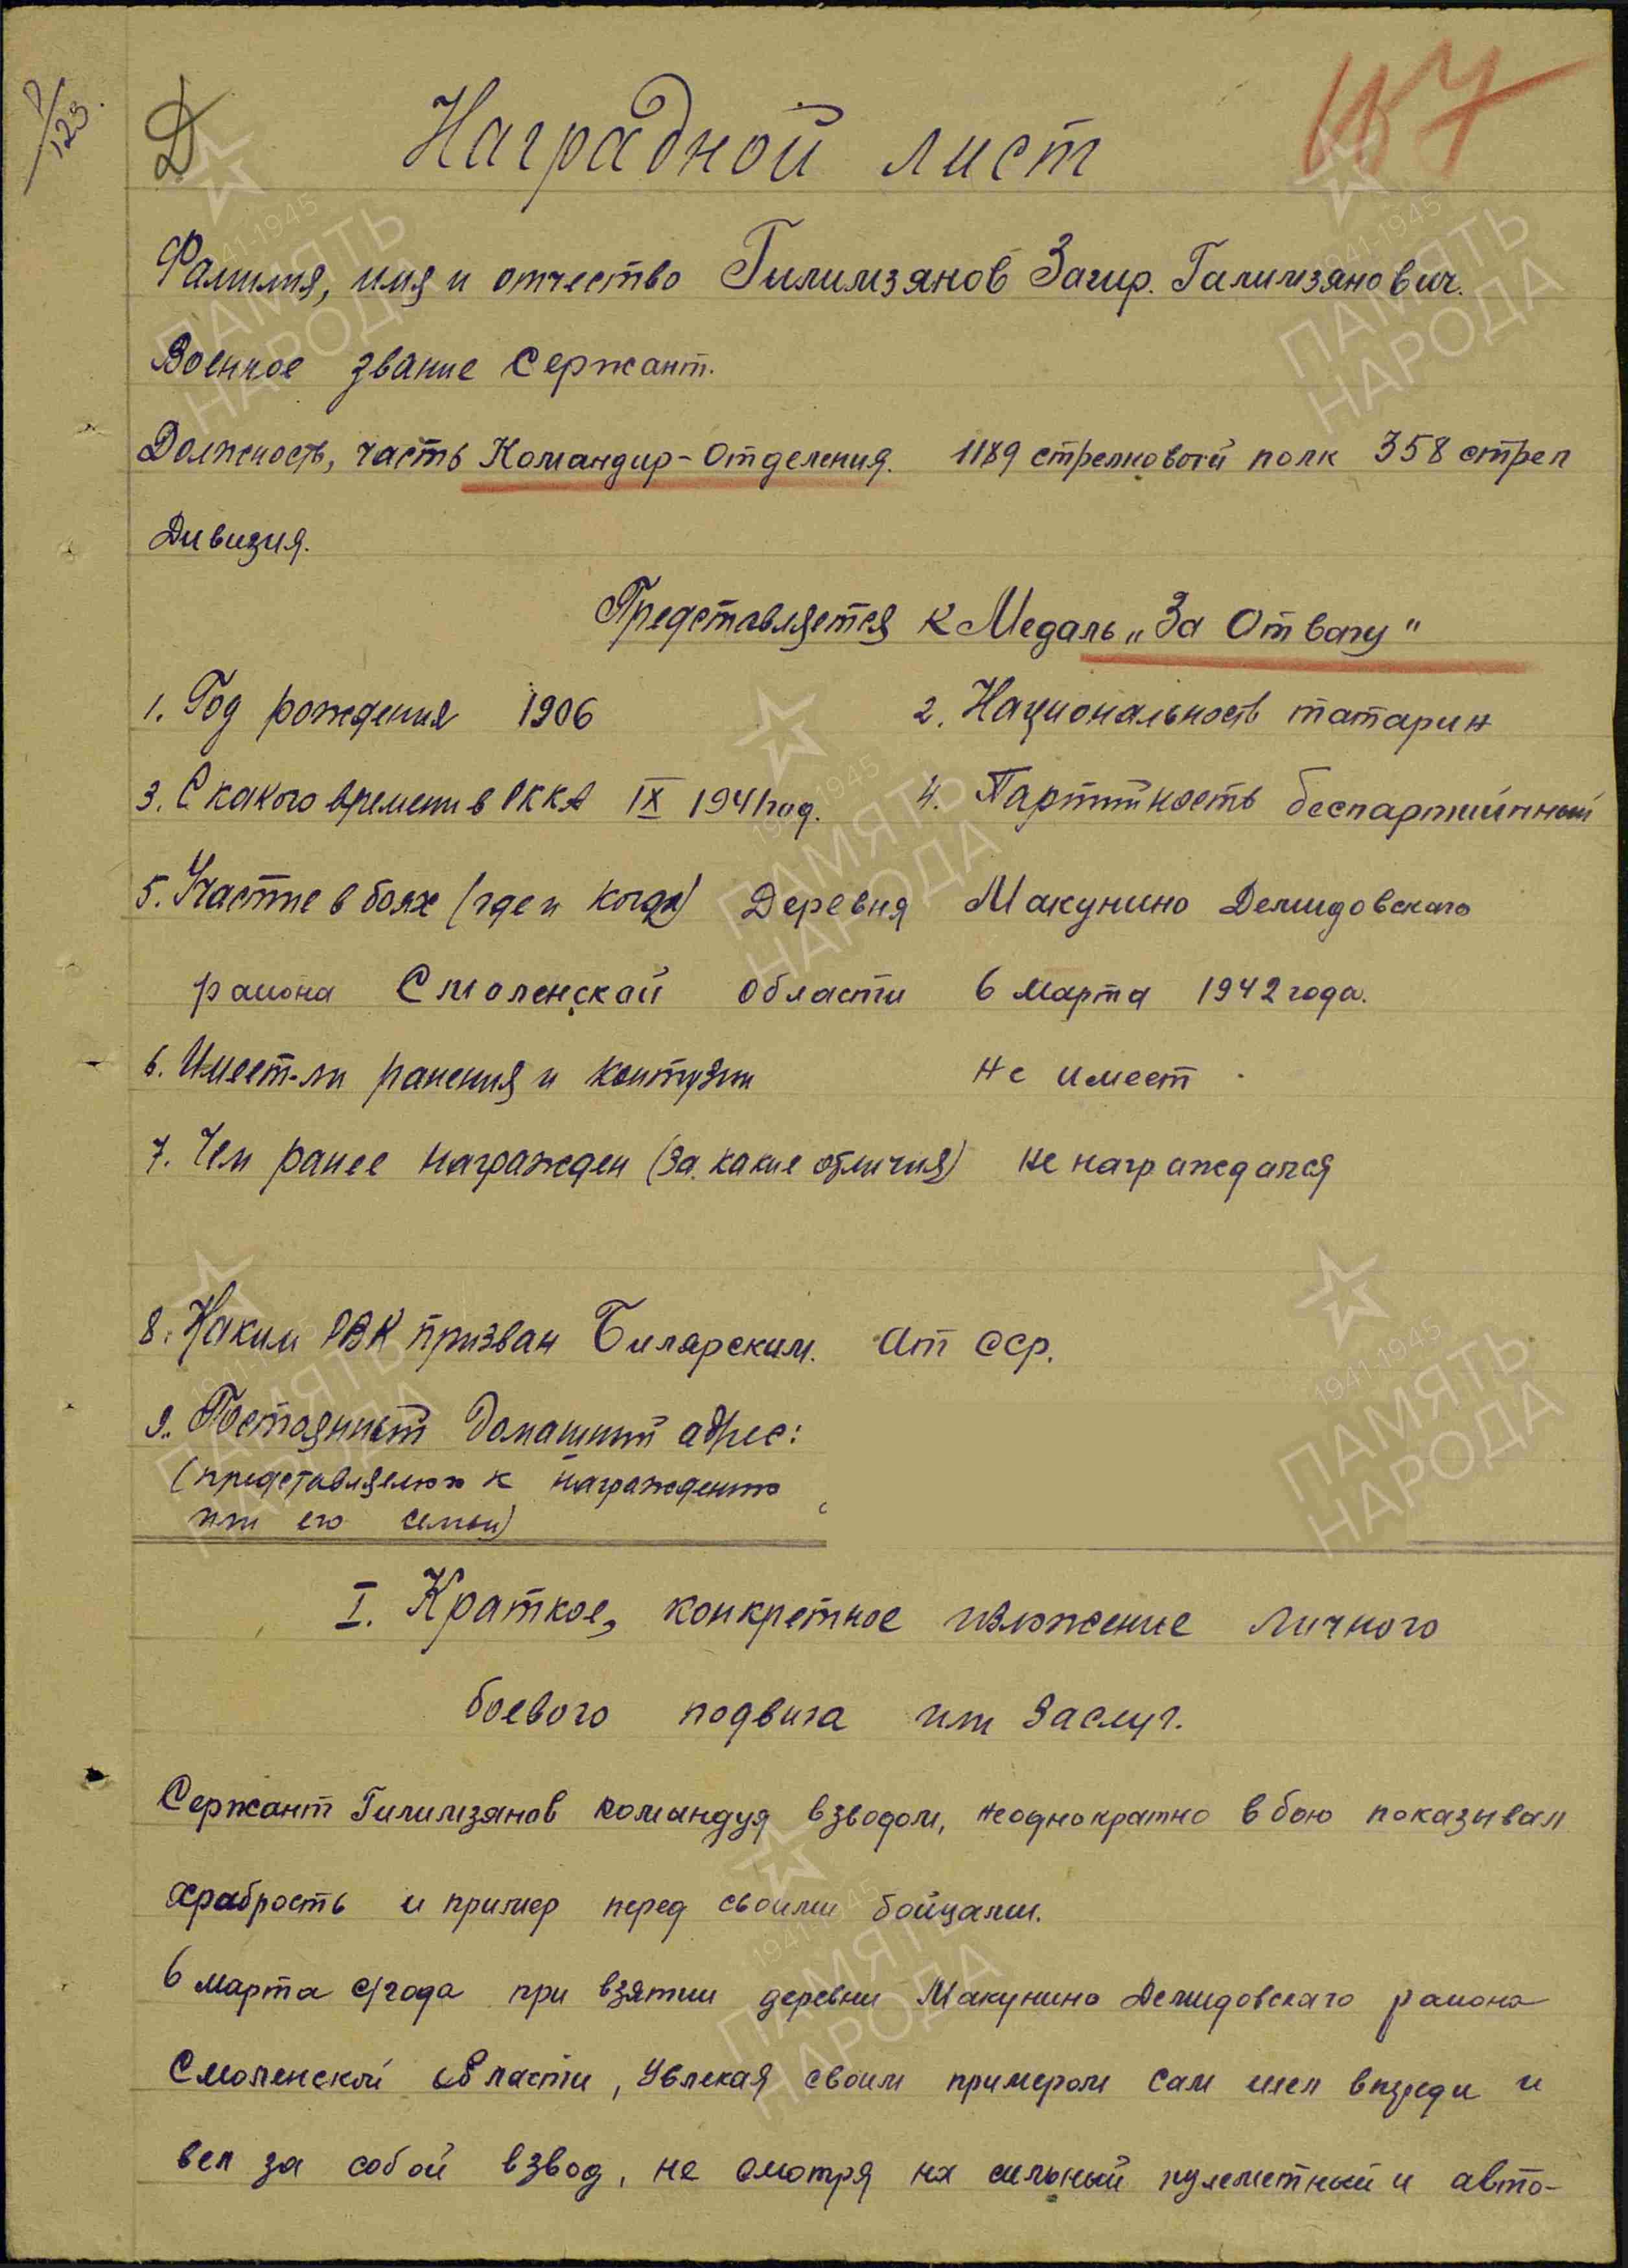 Р/123.
Д
Наградной лист
Фамилия, имя и отчество Гилимзянов Загир. Галимзянович.
Военное звание Сержант.
Должность, часть Командир-Отделения. 1189 стрелковой полк 358 стрел
Дивизия.
Представляется к Медаль „За Отвагу"
1. Год рождения 1906
2. Национальность татарин
3. С какого времени в РККА IX 1941 год.
4. Партийность беспартийнный
5. Участие в боях (где и когда) Деревня Макунино Демидовскаго
района Смоленской области 6 марта 1942 года.
6. Имеет-ли ранения и контузии не имеет.
7. Чем ранее награжден (за какие отличия) не награждался
8. Каким РВК призван Билярским. Ат сср.
9. Постоянный домашний адрес:
(представляемого к награждению
или его семьи)
I. Краткое, конкретное изложение личного
боевого подвига или заслуг.
Сержант Гилимзянов командуя взводом, неоднократно в бою показывал
храбрость и пример перед своими бойцами.
6 марта с/года при взятии деревни Макунино Демидовскаго района
Смоленской области, увлекая своим примером сам шел впереди и
вел за собой взвод, не смотря на сильный пулеметный и авто-
ПАМЯТЬ НАРОДА
1941-1945